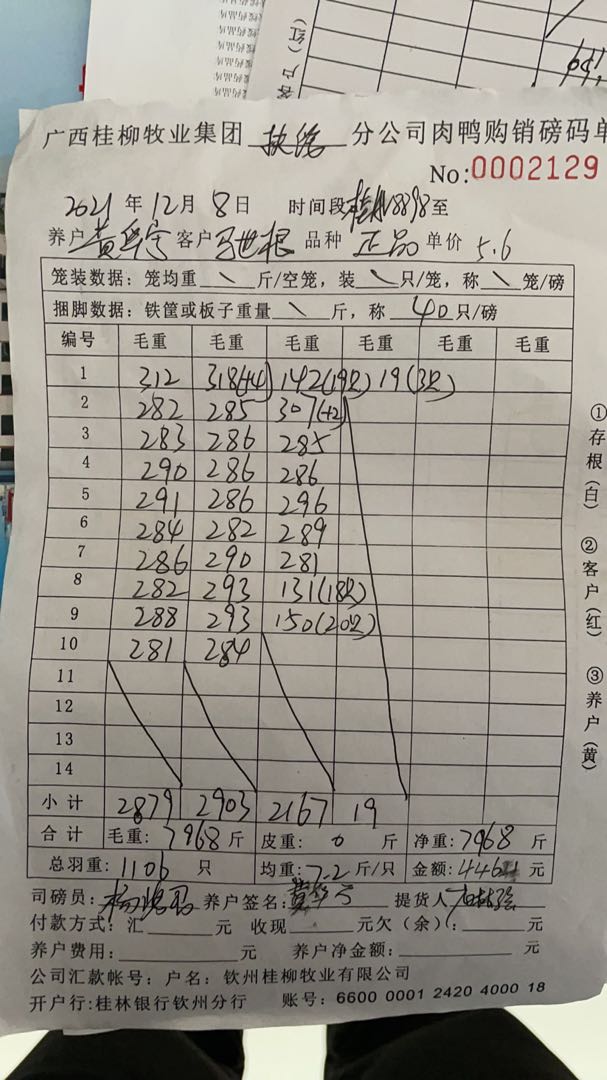 广西桂柳牧业集团 分公司肉鸭购销磅码单
No:0002129
2021年12月8日 时间段 8898至
养户 黄华宁 客户 马世根 品种 正品 单价 5.6
笼装数据：笼均重 \ 斤/空笼，装 \ 只/笼，称 \ 笼/磅
捆脚数据：铁筐或板子重量 \ 斤，称 40 只/磅
编号 毛重 毛重 毛重 毛重 毛重 毛重
1 312 318(+4) 142(19只) 19(3只)
2 282 285 307(+2)
3 283 286 285
4 290 286 286
5 291 286 296
6 284 282 289
7 286 290 281
8 282 293 131(18只)
9 288 293 150(20只)
10 281 284
11
12
13
14
小计 2879 2903 2167 19
合计 毛重：7968斤 皮重：0斤 净重：7968斤
总羽重：1106只 均重：7.2斤/只 金额：44621元
司磅员： 养户签名： 提货人
付款方式：汇 元 收现 元欠（余）： 元
养户费用： 元 养户净金额： 元
公司汇款帐号：户名：钦州桂柳牧业有限公司
开户行:桂林银行钦州分行 账号：6600 0001 2420 4000 18
①存根（白） ②客户（红） ③养户（黄）
客户（红）